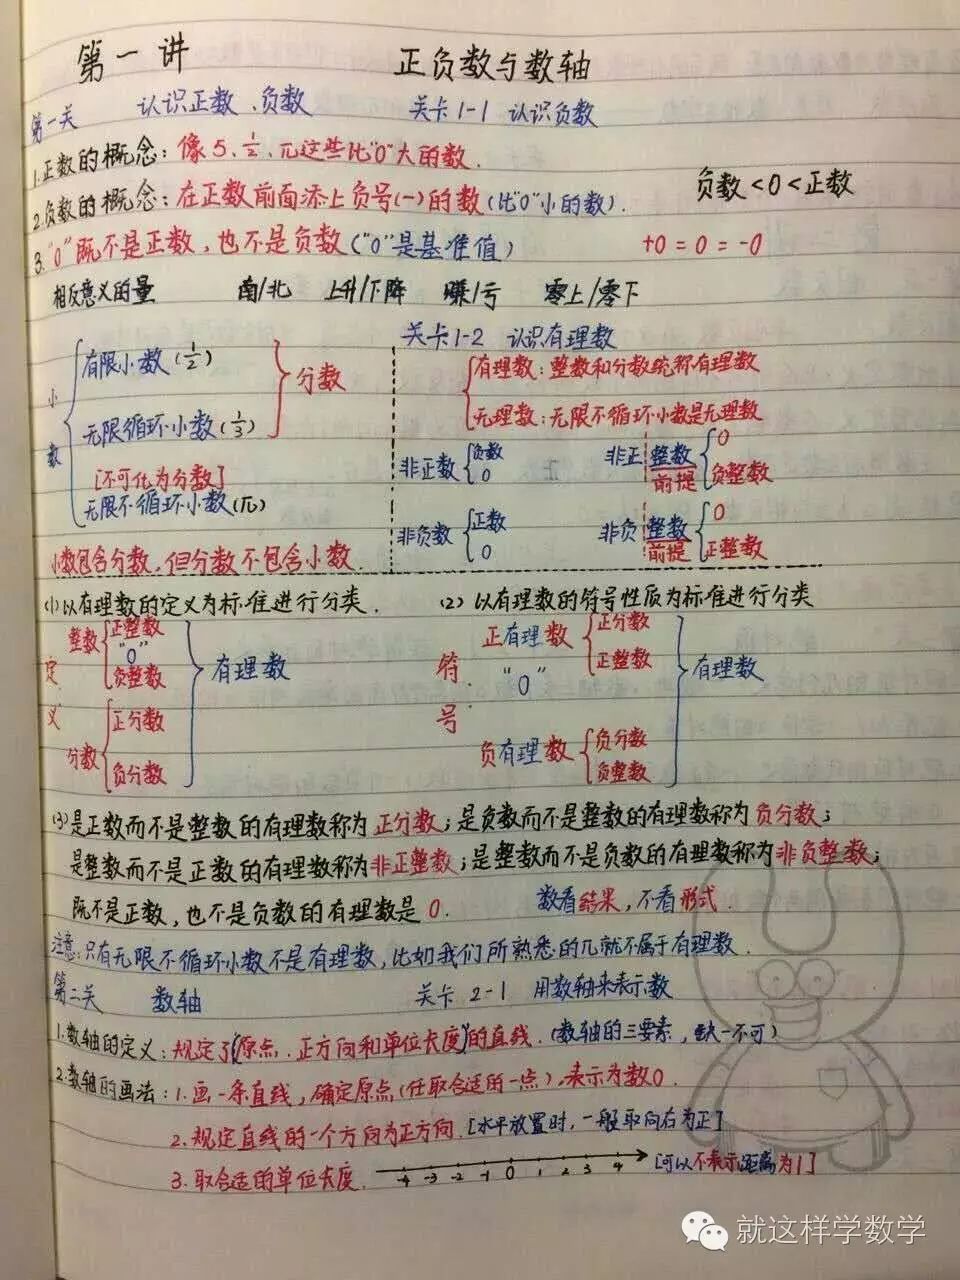 第一讲 正负数与数轴
第一关 认识正数、负数 关卡1-1 认识负数
1.正数的概念：像5、1/2、π这些比"0"大的数.
2.负数的概念：在正数前面添上负号(-)的数(比"0"小的数).
负数<0<正数
3."0"既不是正数，也不是负数("0"是基准值) +0=0=-0
相反意义的量 南/北 上升/下降 赚/亏 零上/零下
关卡1-2 认识有理数
小数
有限小数(1/2)
无限循环小数(1/3)
分数
[不可化为分数]
无限不循环小数(π)
小数包含分数，但分数不包含小数.
有理数：整数和分数统称有理数
无理数：无限不循环小数是无理数
非正数 负数 0
非正整数 前提 0 负整数
非负数 正数 0
非负整数 前提 0 正整数
(1)以有理数的定义为标准进行分类.
定义
整数 正整数 "0" 负整数
分数 正分数 负分数
有理数
(2)以有理数的符号性质为标准进行分类
符号
正有理数 正分数 正整数
"0"
负有理数 负分数 负整数
有理数
(3)是正数而不是整数的有理数称为正分数；是负数而不是整数的有理数称为负分数；
是整数而不是正数的有理数称为非正整数；是整数而不是负数的有理数称为非负整数；
既不是正数，也不是负数的有理数是0. 数看结果，不看形式.
注意：只有无限不循环小数不是有理数，比如我们所熟悉的π就不属于有理数.
第二关 数轴 关卡2-1 用数轴来表示数
1.数轴的定义：规定了(原点.正方向和单位长度)的直线.(数轴的三要素，缺一不可)
2.数轴的画法：1.画一条直线，确定原点(任取合适的一点)，表示为数0.
2.规定直线的一个方向为正方向.[水平放置时，一般取向右为正]
3.取合适的单位长度. -4 -3 -2 -1 0 1 2 3 4 [可以不表示距离为1]
就这样学数学